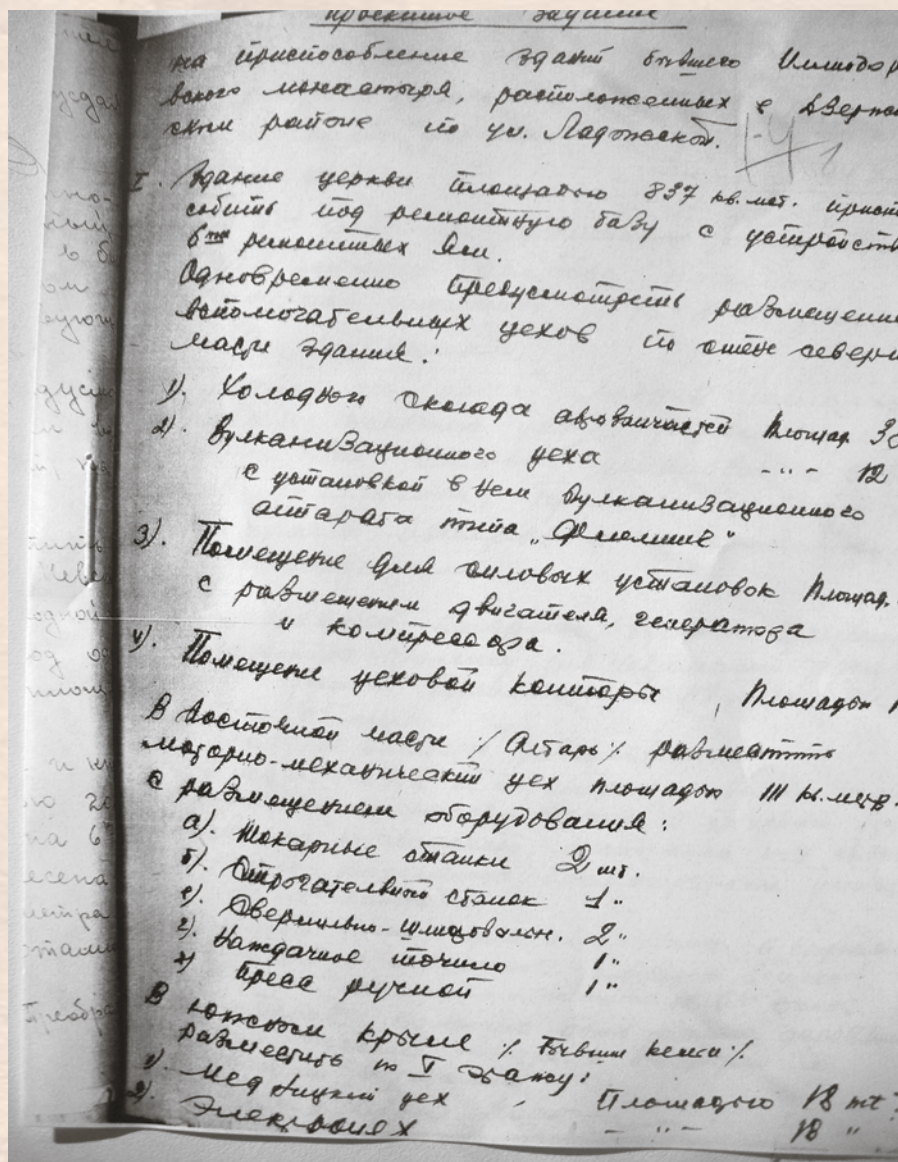 Проектное задание
на приспособление зданий бывшего Иллиодор
вского монастыря, расположенных в Дзержин
ском районе по ул. Ладожской.
I. Здание церкви площадью 837 кв. мет. приспо
собить под ремонтную базу с устройств
6ти ремонтных ям.
Одновременно предусмотреть размещение
вспомогательных цехов по стене северн
части здания:
1). Холодного склада автозапчастей площад. 30
2). Вулканизационного цеха -"- 12
с установкой в нем вулканизационного
аппарата типа
3). Помещение для силовых установок площад.
с размещением двигателя, генератора
и компрессора.
4). Помещение цеховой конторы, площадью
В восточной части /Алтарь/ разместить
моторно-механический цех площадью 111 кв. метр.
с размещением оборудования:
а). Токарные станки 2 шт.
б). Строгательный станок 1 "
в). Сверлильно-шлифовальн. 2 "
г). Наждачное точило 1 "
д) Пресс ручной 1 "
В южном крыле /бывшие кельи/
разместить по I этажу:
1). Медницкий цех площадью 18 mt
2). Электроцех -"- 18 "